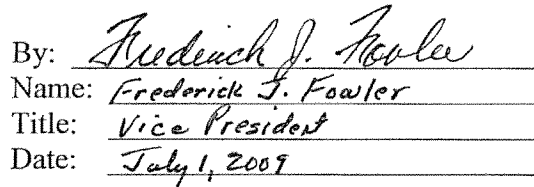 By: Frederick J. Fowler
Name: Frederick J. Fowler
Title: Vice President
Date: July 1, 2009